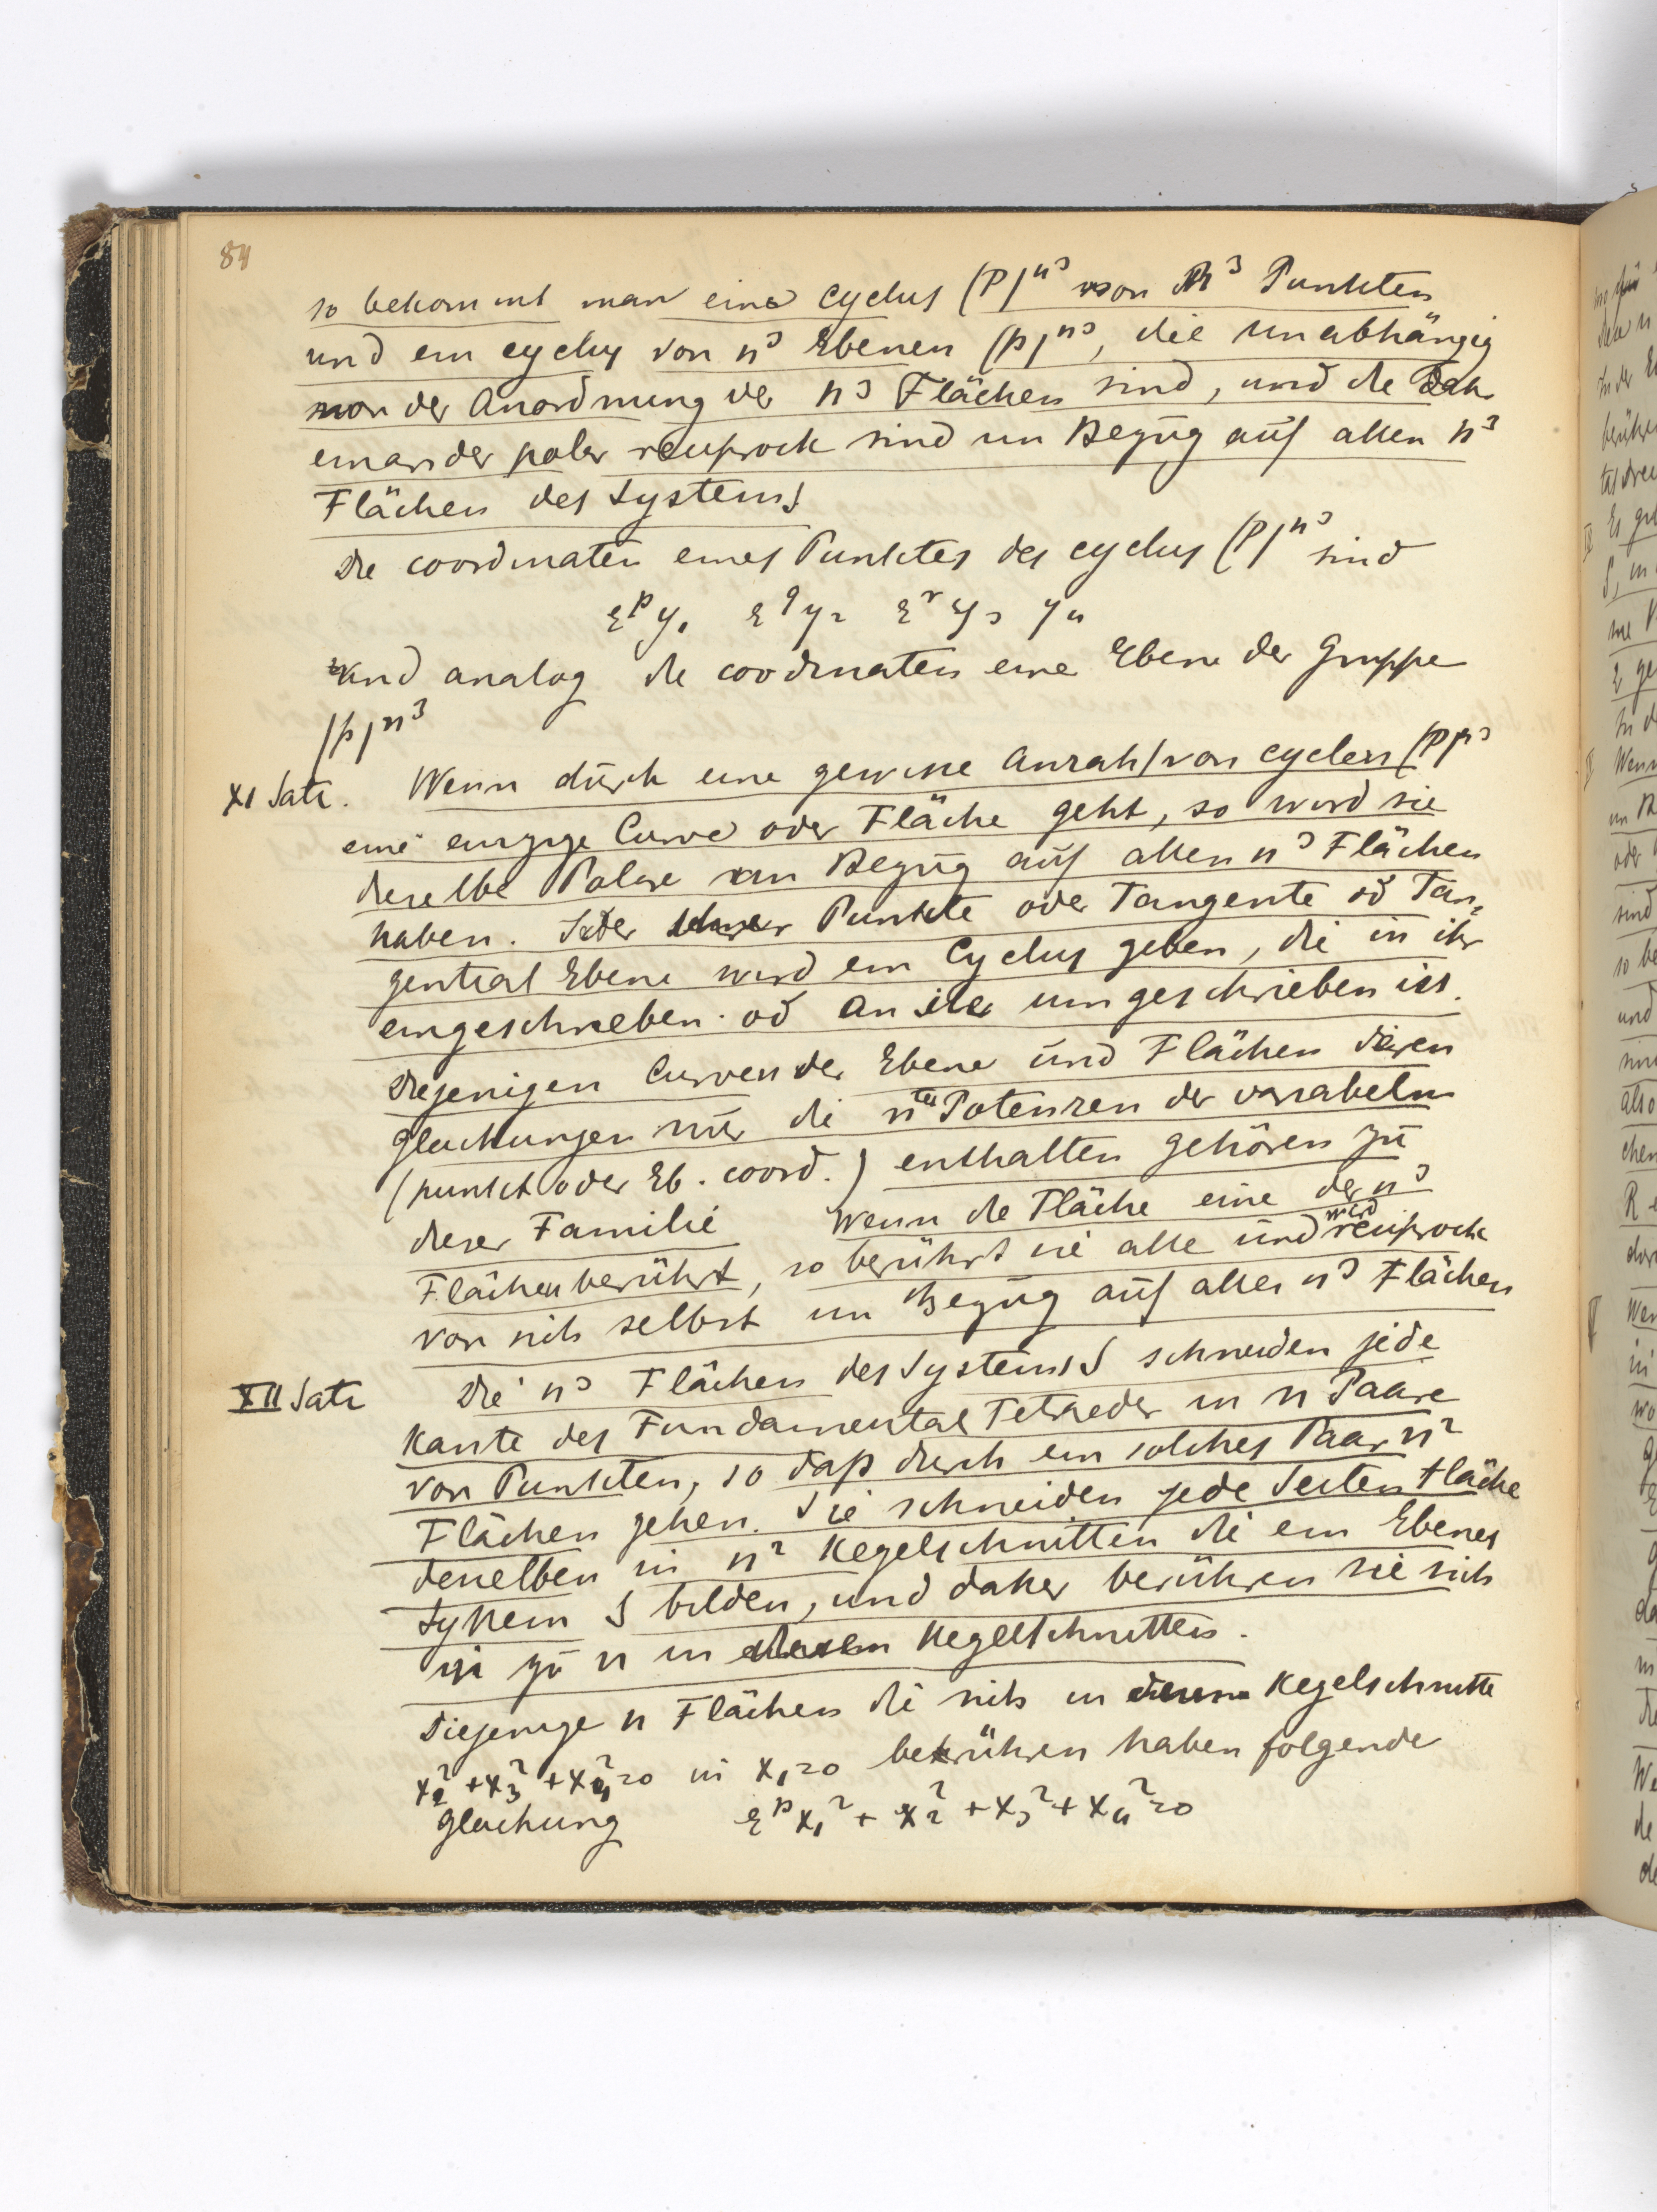 84
so bekommt man eine cyclus (P)^n³ von n³ Punkten
und ein cyclus von n³ Ebenen (p)^n³, die unabhängig
von der Anordnung der n³ Flächen sind, und die
einander polar reciprock sind in Bezug auf allen n³
Flächen des Systems
Die coordinaten eines Punktes des cyclus (P)^n³ sind
ε^p y₁ ε^q y₂ ε^r y₃ y₄
und analog die coordinaten eine Ebene der Gruppe
(p)^n³
XI Satz. Wenn durch eine gewisse Anzahl von cyclen (P)^n³
eine einzige Curve oder Fläche geht, so wird sie
dieselbe Polare in Bezug auf allen n³ Flächen
haben. Jeder Punkte oder Tangente od Tan=
gential Ebene wird ein Cyclus geben, die in ihr
eingeschrieben od an ihr umgeschrieben ist.
Diejenigen Curven der Ebene und Flächen deren
Gleichungen nur die n^ten Potenzen der variabeln
(punkt oder Eb. coord.) enthalten gehören zu
dieser Familie Wenn die Fläche eine der n³
Flächen berührt, so berührt sie alle und wird reciprock
von sich selbst in Bezug auf allen n³ Flächen
XII Satz Die n³ Flächen des Systems S schneiden jede
Kante des Fundamental Tetraeder in n Paare
von Punkten, so daß durch ein solches Paar n²
Flächen gehen. Sie schneiden jede Seiten fläche
denselben in n² Kegelschnitten die ein Ebenes
System S bilden, und daher berühren sie sich
in zu n in diesen Kegelschnitten.
Diejenige n Flächen die sich in diesem Kegelschnitte
x₂²+x₃²+x₄²=0 in x₁=0 berühren haben folgende
Gleichung ε^p x₁²+x₂²+x₃²+x₄²=0